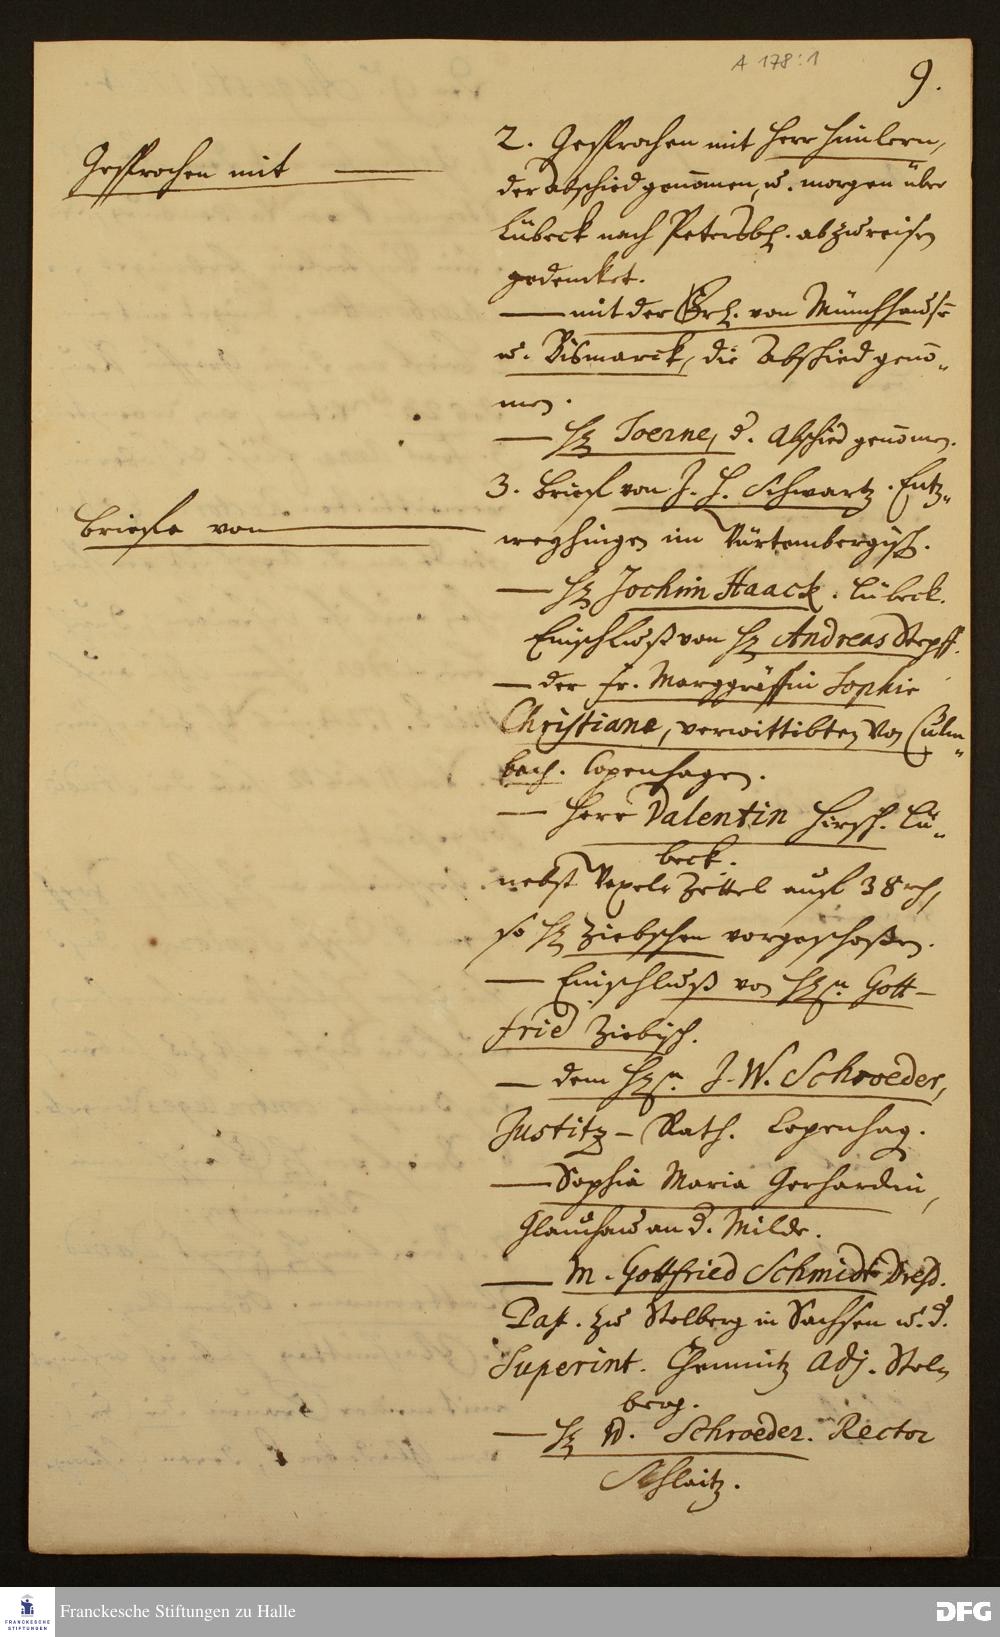 A 178:1
9.
Gesprochen mit
2. Gesprochen mit Herr
der Abschied genom̄en, u. morgen über
Lübeck nach Petersb. abzureisen
gedencket.
— mit der von Münchhausen
u. Bismarck, die Abschied genom̄„
men.
— H. Toerne, d. Abschied genom̄en.
Briefe von
3. Brief von J. H. Schwartz. Entz„
weyhingen im Würtembergisch.
— H. Jochim Haack. Lübeck.
Einschluß von H. Andreas
— der Fr. Marggräffin Sophie
Christiane, verwittibten von Culm„
bach. Copenhagen.
— Herr Valentin Hirsch. Lü„
beck.
nebst Wexel-Zettel auf 38 rth,
so H. Ziebschen vorgeschoßen.
— Einschluß von H. Gott-
fried Ziebisch.
— dem H. J. W. Schroeder,
Justitz-Rath. Copenhag.
— Sophia Maria Gerhardin,
Glauchau an d. Milde.
— M. Gottfried Schmidt Dresd.
Past. zu Stolberg in Sachsen u. d.
Superint. Chemnitz Adj. Stoll
berg.
— H. Schroeder. Rector
Schlaitz.
FRANCKESCHE
STIFTUNGEN
Franckesche Stiftungen zu Halle
DFG